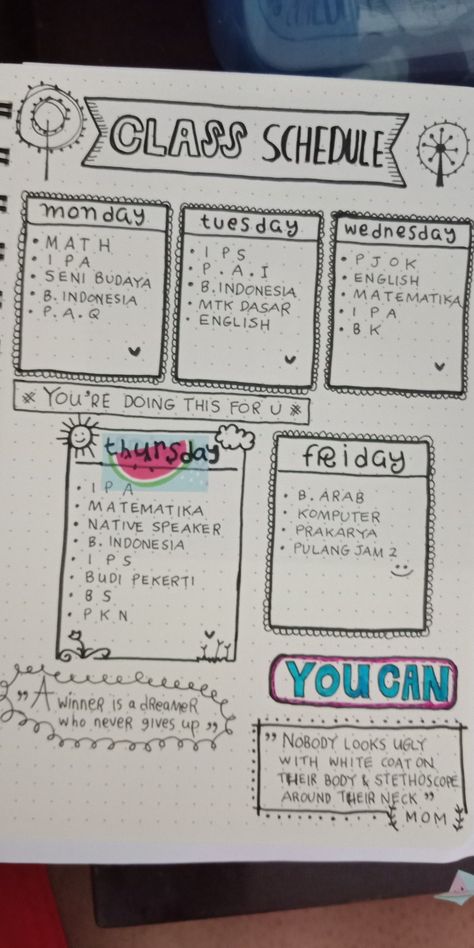 CLASS SCHEDULE
monday
• MATH
• I P A
• SENI BUDAYA
• B. INDONESIA
• P. A. Q
tuesday
• I P S
• P. A. I
• B. INDONESIA
• MTK DASAR
• ENGLISH
wednesday
• P J O K
• ENGLISH
• MATEMATIKA
• I P A
• B K
* YOU'RE DOING THIS FOR U *
thursday
• I P A
• MATEMATIKA
• NATIVE SPEAKER
• B. INDONESIA
• I P S
• BUDI PEKERTI
• B S
• P K N
friday
• B. ARAB
• KOMPUTER
• PRAKARYA
• PULANG JAM 2
"A WINNER IS A dREAMER
who never gives up"
YOU CAN
"NOBODY LOOKS UGLY
WITH WHITE COAT ON
THEIR BODY & STETHOSCOPE
AROUND THEIR NECK"
MOM